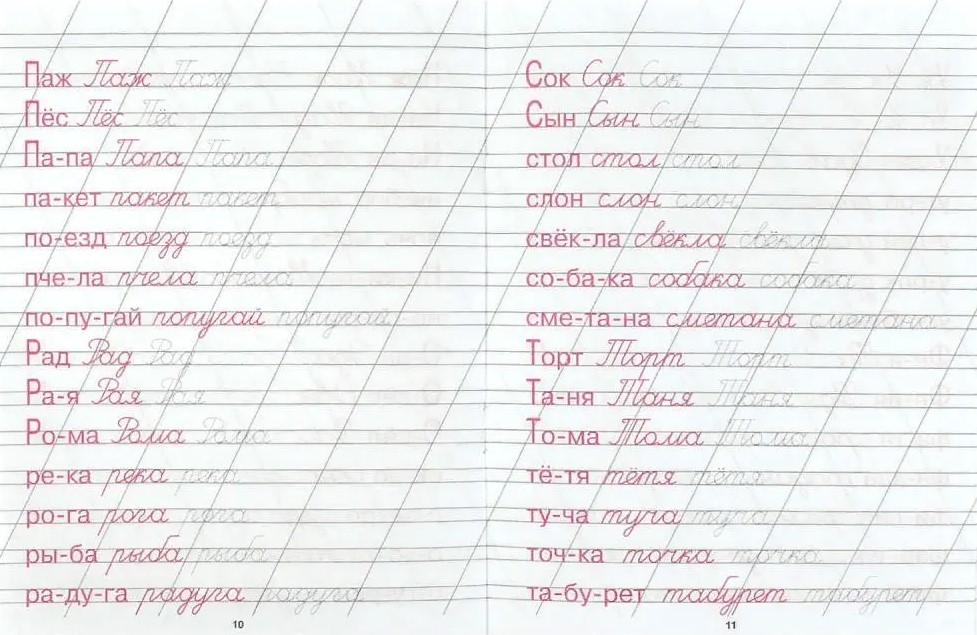 Паж Паж Паж
Пёс Пёс Пёс
Па-па Папа Папа
па-кет пакет пакет
по-езд поезд поезд
пче-ла пчела пчела
по-пу-гай попугай попугай
Рад Рад Рад
Ра-я Рая Рая
Ро-ма Рома Рома
ре-ка река река
ро-га рога рога
ры-ба рыба рыба
ра-ду-га радуга радуга
10
Сок Сок Сок
Сын Сын Сын
стол стол стол
слон слон слон
свёк-ла свёкла свёкла
со-ба-ка собака собака
сме-та-на сметана сметана
Торт Торт Торт
Та-ня Таня Таня
То-ма Тома Тома
тё-тя тётя тётя
ту-ча туча туча
точ-ка точка точка
та-бу-рет табурет табурет
11